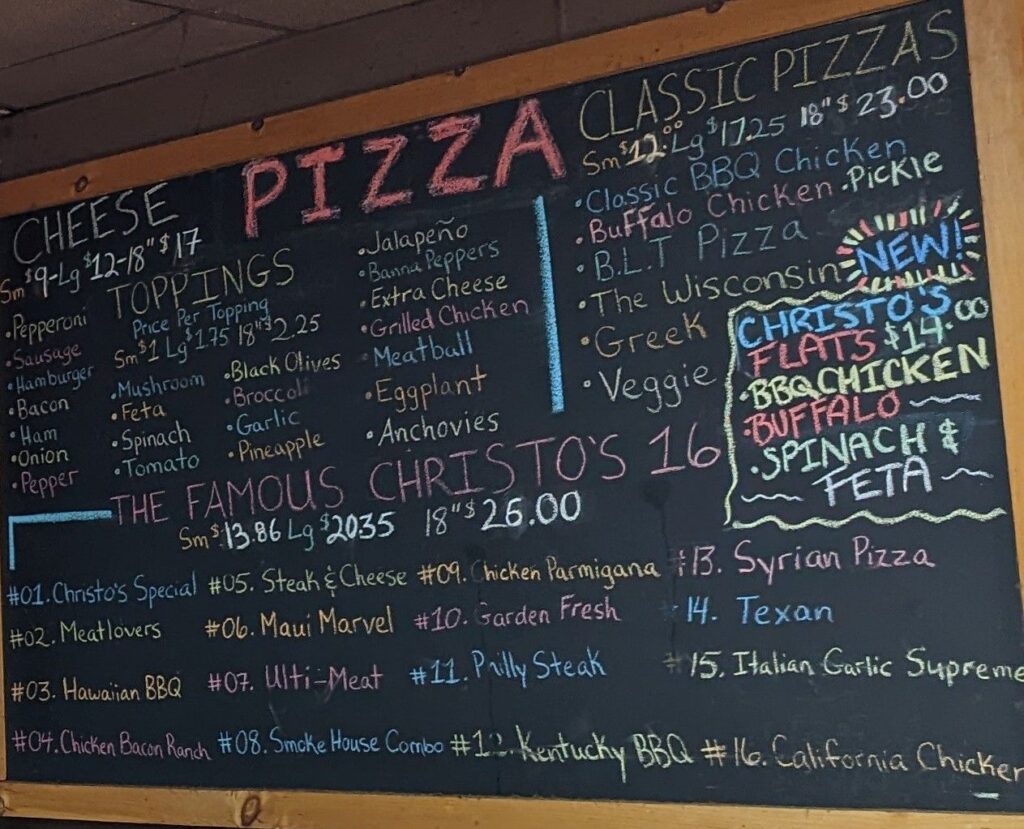 PIZZA
CHEESE
Sm $9-Lg $12-18" $17
TOPPINGS
Price Per Topping
Sm $1 Lg $1.75 18" $2.25
•Pepperoni
•Sausage
•Hamburger
•Bacon
•Ham
•Onion
•Pepper
•Mushroom
•Feta
•Spinach
•Tomato
•Black Olives
•Broccoli
•Garlic
•Pineapple
•Jalapeño
•Banna Peppers
•Extra Cheese
•Grilled Chicken
•Meatball
•Eggplant
•Anchovies
CLASSIC PIZZAS
Sm $12.00 Lg $17.25 18" $23.00
•Classic BBQ Chicken
•Buffalo Chicken •Pickle
•B.L.T Pizza
•The Wisconsin
•Greek
•Veggie
NEW!
CHRISTO'S
FLATS $14.00
•BBQ CHICKEN
•BUFFALO
•SPINACH &
FETA
THE FAMOUS CHRISTO'S 16
Sm $13.86 Lg $2035 18" $26.00
#01. Christo's Special
#02. Meatlovers
#03. Hawaiian BBQ
#04. Chicken Bacon Ranch
#05. Steak & Cheese
#06. Maui Marvel
#07. Ulti-Meat
#08. Smoke House Combo
#09. Chicken Parmigana
#10. Garden Fresh
#11. Philly Steak
#12. Kentucky BBQ
#13. Syrian Pizza
14. Texan
#15. Italian Garlic Supreme
#16. California Chicken